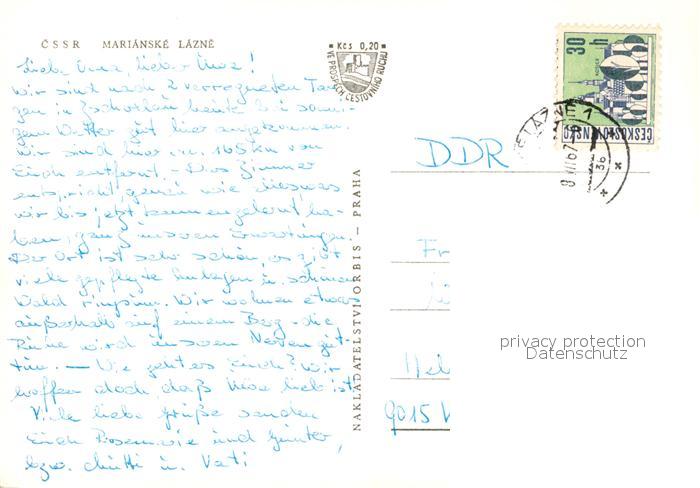 ČSSR MARIÁNSKÉ LÁZNĚ
Kčs 0,20
VE PROSPĚCH CESTOVNÍHO RUCHU
30 h
ČESKOSLOVENSKO
Liebe Oma, lieber Uwe!
Wir sind nach 2 verregneten Ta-
gen in Zschorlau heute bei sonni-
gem Wetter gut hier angekommen.
Wir sind hier nur 165 km von
Euch entfernt. – Das Zimmer
entspricht, genau wie alles, was
wir bis jetzt kennengelernt ha-
ben, ganz unseren Erwartungen.
Der Ort ist sehr schön, es gibt
viele gepflegte Anlagen u. schönen
Wald ringsum. Wir wohnen etwas
außerhalb auf einem Berg – die
Ruhe wird unseren Nerven gut-
tun. – Wie geht es Euch? Wir
hoffen doch, daß Uwe lieb ist.
Viele liebe Grüße senden
Euch Rosemarie und Günter,
bzw. Mutti u. Vati
NAKLADATELSTVÍ ORBIS – PRAHA
DDR
Fr
Hel
9015
privacy protection
Datenschutz